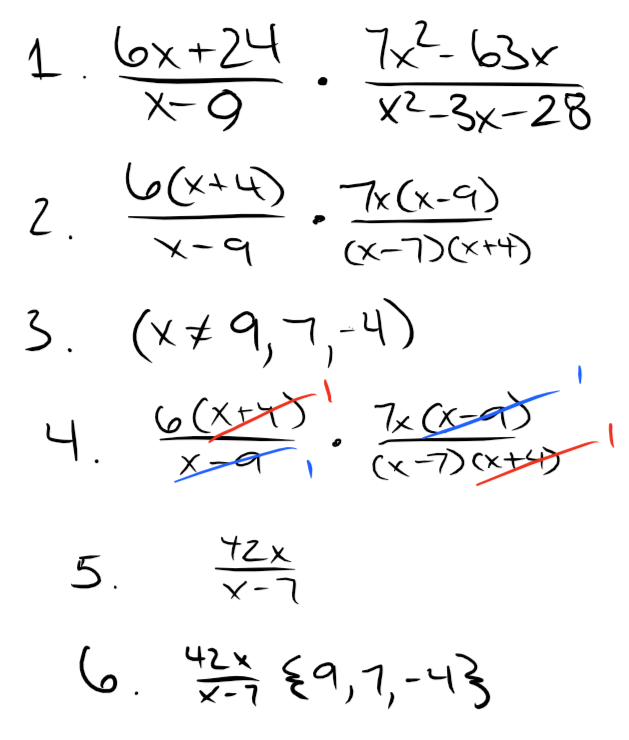 1. (6x+24)/(x-9) · (7x²-63x)/(x²-3x-28)
2. 6(x+4)/(x-9) · 7x(x-9)/((x-7)(x+4))
3. (x≠9,7,-4)
4. 6(x+4)/(x-9) · 7x(x-9)/((x-7)(x+4)) 1 1 1 1
5. 42x/(x-7)
6. 42x/(x-7) {9,7,-4}